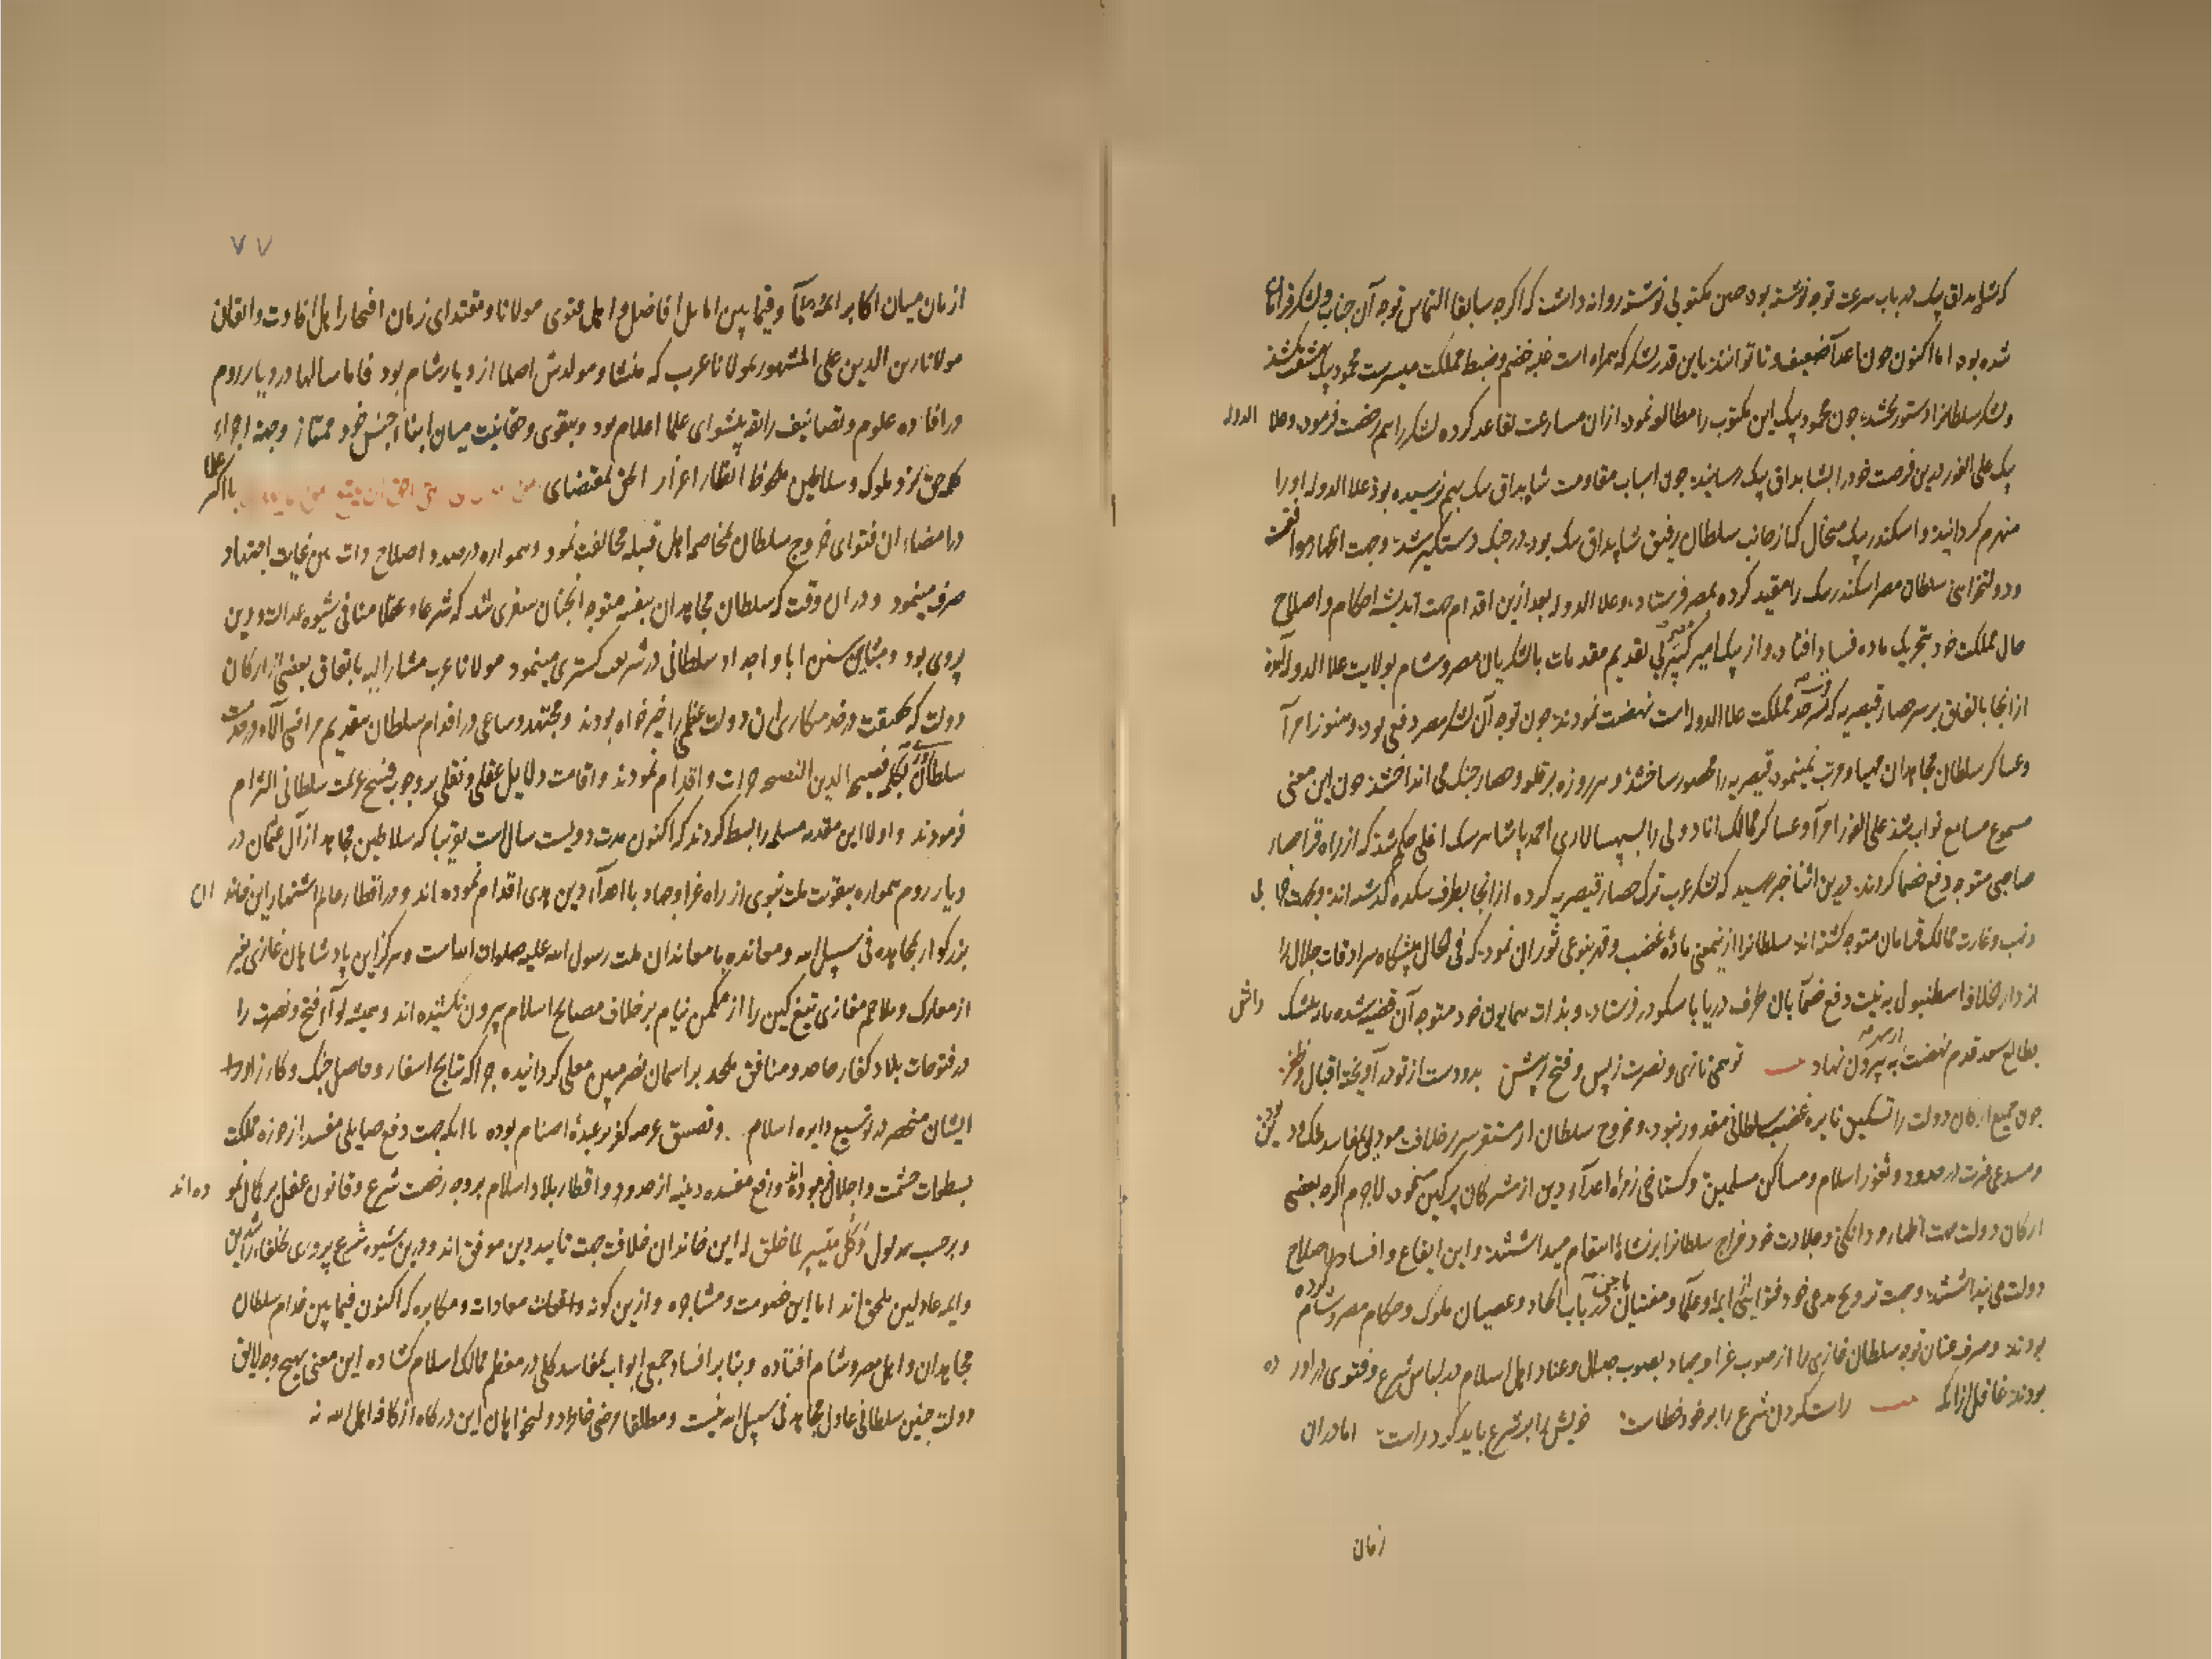 که شاه بداق بیک در باب سرعت توجه نوشته بود همین مکتوبی نوشته روانه داشت که اگرچه سابقا التماس توجه آن جناب و لشکر فراوان
شده بود اما اکنون چون اعدا ضعیف و ناتوانند باین قدر لشکر که همراه است غلبه خصم و ضبط مملکت میسرست محمود بیک
و لشکر سلطانرا دستور بخشد چون محمود بیک این مکتوب را مطالعه نمود از آن مسارعت تقاعد کرده لشکر را هم رخصت فرمود و علا الدوله
بیک علی الفور درین فرصت خود را بشاه بداق بیک رسانید چون اسباب مقاومت شاه بداق بیک بهم نرسیده بود علا الدوله او را
منهزم گردانید و اسکندر بیک میخال که از جانب سلطان رفیق شاه بداق بیک بود در جنگ دستگیر شد و جهت اظهار موافقت
و دولتخواهی سلطان مصر اسکندر بیک را مقید کرده بمصر فرستاد و علا الدوله بعد ازین اقدام جهت اندیشه احکام و اصلاح
حال مملکت خود بتحریک ماده فساد افتاد و از بیک امیر کبیر بی تقدیم مقدمات با لشکریان مصر و شام بولایت علا الدوله آمده
از آنجا باتفاق بر سر حصار قیصریه که سرحد مملکت علا الدوله است نهضت نمودند چون توجه آن لشکر مصر دفعی بود و هنوز امرا
و عساکر سلطان مجاهدان مهیا و مرتب نمینمود قیصریه را محصور ساختند و هر روزه بر قلعه و حصار جنگ می انداختند چون این معنی
مسموع مسامع نواب شد علی الفور امرآ و عساکر ممالک انادولی را بسپهسالاری احمد پاشا هرسک اغلی حکم شد که از راه قراحصار
صاحبی متوجه دفع خصما کردند درین اثنا خبر رسید که لشکر عرب ترک حصار قیصریه کرده از آنجا بطرف نیکده گذشته اند و بجهت
نهب و غارت ممالک قرامان متوجه گشته اند سلطانرا ازینمعنی مادهٔ غضب و قهر بنوعی ثوران نمود که فی الحال پیشگاه سرادقات جلال را
از دار الخلافه اسطنبول به نیت دفع خصما بآن طرف دریا باسکودر فرستاد و بذات همایون خود متوجه آن قضیه شده
بطالع سعد قدم نهضت به بیرون نهاد توهمی تازی و نصرت ز پس و فتح ز پیش بدو دست از تو در آویخته اقبال و ظفر
چون جمیع ارکان دولت را تسکین نایره غضب سلطانی مقدور نبود و خروج سلطان از مستقر سریر خلافت مودی بمفاسد ملک و دین
و مستدعی فرت از حدود و ثغور اسلام و مساکن مسلمین و گستاخی زمره اعدآ و دین از مشرکان پرکین میبود لاجرم اگرچه بعضی
ارکان دولت جهت اظهار مردانگی و جلادت خود خراج سلطانرا بر نشاء انتقام میداشتند و این ایقاع و افساد را صلاح
دولت می پنداشتند و جهت ترویج مدعی خود فتوایی از ایمه و علما و مفتیان در باب الحاد و عصیان ملوک و حکام مصر و شام کرده
بودند و صرف عنان توجه سلطان غازی را از صوب غزا و جهاد بصوب جدال و عناد اهل اسلام در لباس شرع و فتوی در آورده
بودند غافل از آنکه راست کردن شرع را بر خود خطاست خویش را بر شرع باید کرد راست اما در آن
زمان
۷۷
از میان میان اکابر ائمه علما و فیما بین اماثل افاضل و اهل فتوی مولانا و مقتدای زمان افتخار اهل افادت و اتقان
مولانا زین الدین علی المشهور بمولانا عرب که منشا و مولدش اصلا از دیار شام بود فاما سالها در دیار روم
در افاده علوم و تصانیف رائقه پیشوای علما اعلام بود و بتقوی و حقانیت میان ابناء جنس خود ممتاز و جهت اجراء
کلمه حق نزد ملوک و سلاطین ملحوظ انظار اعزاز الحق بمقتضای با اکثر علما
در امضاء آن فتوای خروج سلطان بمخاصمه اهل قبله مخالفت نمود و همواره در صدد اصلاح ذات بین غایت اجتهاد
صرف مینمود و در آن وقت که سلطان مجاهدان بنفسه متوجه آنچنان سفری شد که شرعا و عقلا منافی شیوه عدالت و دین
پروری بود و مباین سنن ابا و اجداد سلطانی در شریعت گستری مینمود مولانا عرب مشار الیه باتفاق بعضی از ارکان
دولت که بحقیقت در خدمتکاری آن دولت عظمی را خیرخواه بودند و مجتهد و ساعی در اقدام سلطان بتقدیم مراضی اله و در خدمت
سلطان بکلمه فصیح الدین النصیحه جرات و اقدام نمودند و اقامت دلایل عقلی و نقلی بر وجوب فسخ عزیمت سلطانی التزام
فرمودند و اولا این مقدمه مسلمه را بسط کردند که اکنون مدت دویست سال است تقریبا که سلاطین مجاهد از آل عثمان در
دیار روم همواره بتقویت ملت نبوی از راه غزا و جهاد با اعدآء دین هدی اقدام نموده اند و در اقطار عالم اشتهار این خاندان
بزرگوار بمجاهده فی سبیل الله و معانده با معاندان ملت رسول الله علیه صلوات الله است و هرگز این پادشاهان غازی بغیر
از معارک و ملاحم مغازی تیغ کین را از مکمن نیام بر خلاف مصالح اسلام بیرون نکشیده اند و همیشه لوآء فتح و نصرت را
در فتوحات بلاد کفار جاحد و منافق ملحد بر اسمان نصر مبین معلی گردانیده چرا که نتایج اسفار و حاصل جنگ و کارزار
ایشان منحصر در توسیع دایره اسلام و تضییق عرصه کفر و عبدهٔ اصنام بوده یا آنکه جهت دفع صیالی مفسد از حوزه مملکت
بسطوات حشمت و اجلال می بوده اند و رفع مفسده دینیه از حدود و اقطار بلاد اسلام بر وجه رخصت شرع و قانون عقل بر کمال نموده اند
و برحسب مدلول و کل میسر لما خلق له این خاندان خلافت جهت تایید دین موفق اند و درین شیوه شرع پروری بخلفاء راشدین
و ایمه عادلین ملحق اند اما این خصومت و مشاجره و ازین گونه واقعات معادات و مکابره که اکنون فیما بین خدام سلطان
مجاهدان و اهل مصر و شام افتاده و بنا بر افساد جمعی ابواب مفاسد کلی در معظم ممالک اسلام گشاده این معنی بهیچ وجه لایق
دولت چنین سلطانی عادل مجاهد فی سبیل الله نیست و مطلقا مرضی خاطر دولتخواهان این درگاه از کافه اهل الله نه